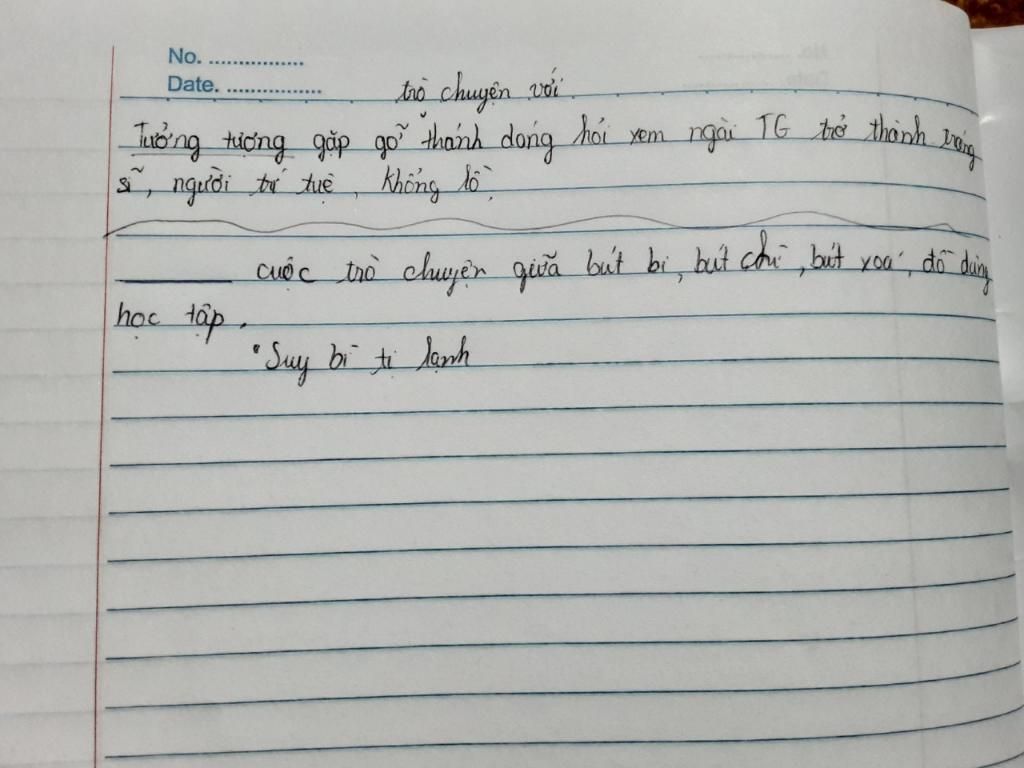 No. ................
Date. ................
trò chuyện với
Tưởng tượng gặp gỡ thánh dóng hỏi xem ngài TG trở thành tráng
sĩ, người trí tuệ, khổng lồ.
cuộc trò chuyện giữa bút bi, bút chì, bút xoá, đồ dùng
học tập.
Suy bì tị lạnh